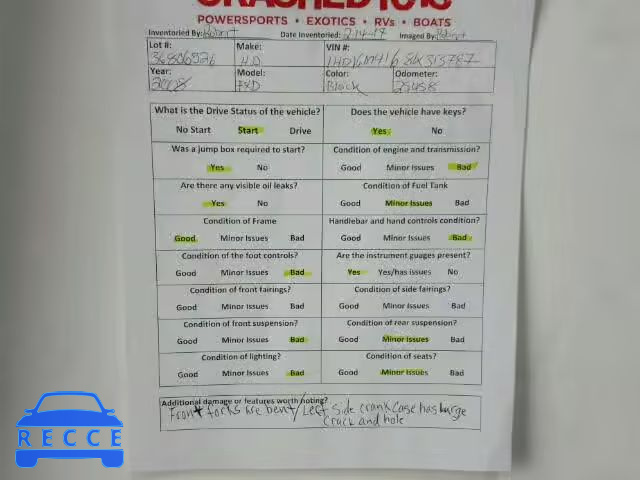 CRASHED TOYS
POWERSPORTS • EXOTICS • RVs • BOATS
Inventoried By: Robert Date Inventoried: 2-14-17 Imaged By: Robert
Lot #: Make: VIN #:
36806526 H.D
Year: Model: Color: Odometer:
2008 FXD Black 25458
What is the Drive Status of the vehicle? Does the vehicle have keys?
No Start Start Drive Yes No
Was a jump box required to start? Condition of engine and transmission?
Yes No Good Minor Issues Bad
Are there any visible oil leaks? Condition of Fuel Tank
Yes No Good Minor Issues Bad
Condition of Frame Handlebar and hand controls condition?
Good Minor Issues Bad Good Minor Issues Bad
Condition of the foot controls? Are the instrument guages present?
Good Minor Issues Bad Yes Yes/has issues No
Condition of front fairings? Condition of side fairings?
Good Minor Issues Bad Good Minor Issues Bad
Condition of front suspension? Condition of rear suspension?
Good Minor Issues Bad Good Minor Issues Bad
Condition of lighting? Condition of seats?
Good Minor Issues Bad Good Minor Issues Bad
Additional damage or features worth noting?
Front forks are bent/Left side crank case has large
crack and hole
RECCE